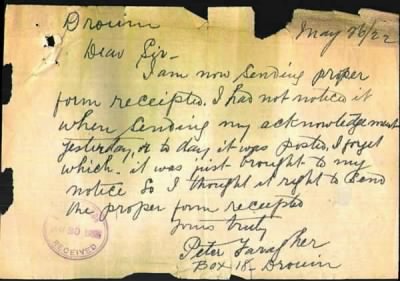 Drouin
May 26/22
Dear Sir-
I am now sending proper
form receipted. I had not noticed it
when sending my acknowledgement
yesterday, or to day it was posted, I forget
which. it was just brought to my
notice so I thought it right to send
the proper form receipted
yours truly
Peter Faragher
Box 18- Drouin
30
RECEIVED